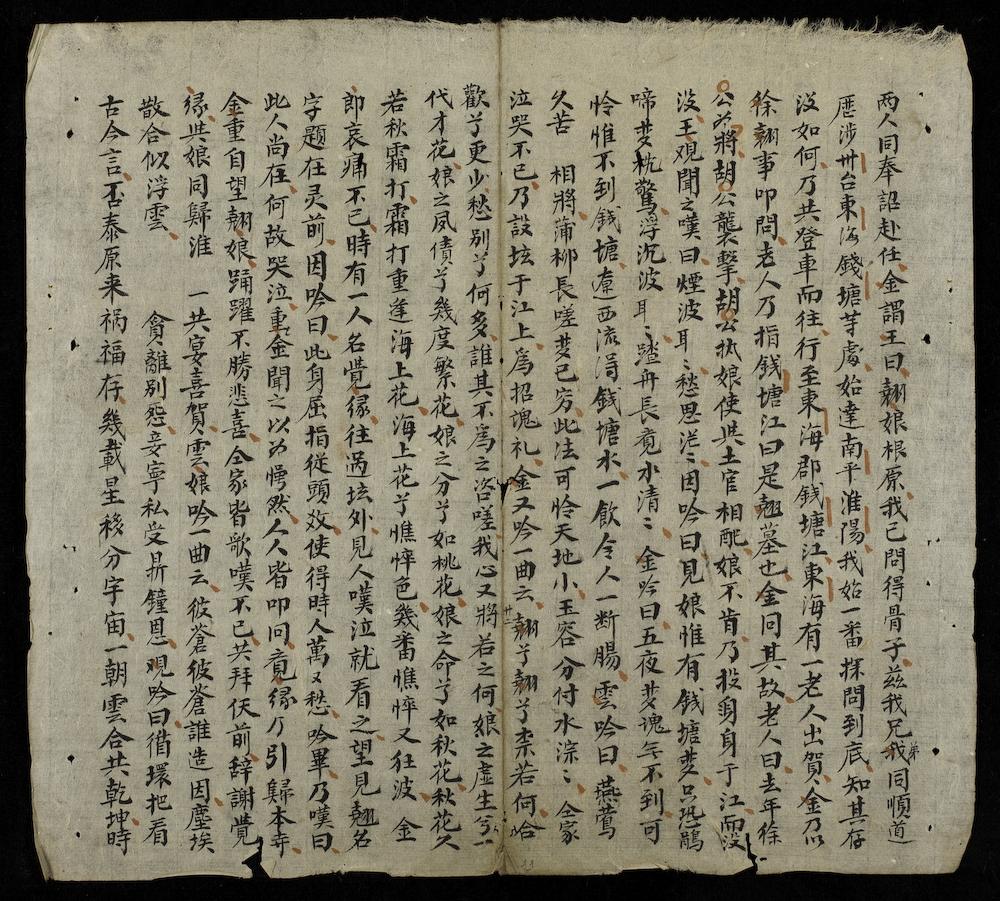 两人同奉詔赴任金謂王曰翹娘根原我已問得骨子兹我兄弟我同順道
歷涉卅台東海錢塘芽處始達南平淮陽我始一番探問到底知其存
没如何乃共登車而往行至東海郡錢塘江東海有一老人出賀金乃以
徐翹事叩問老人乃指錢塘江曰是翹墓也金问其故老人曰去年徐
公为將胡公襲擊胡公执娘使共土官相配娘不肯乃投身于江而没
没王观聞之嘆曰煙波耳〻愁思茫〻因吟曰見娘惟有錢塘梦只恐鵑
啼梦枕驚浮沉波耳〻踏舟長竟水清〻 金吟曰五夜梦魂無不到可
怜惟不到錢塘臺西流淂錢塘水一飲令人一断腸雲吟曰燕鶯
久苦 相將蒲柳長嗟梦已穷此法可怜天地小玉容分付水淙〻 全家
泣哭不已乃設坛于江上爲招魂礼金又吟一曲云 翹兮翹兮柰若何哈
歡兮更少愁别兮何多誰其不爲之咨嗟我心又將若之何娘之虛生兮一
代才花娘之夙債兮幾度繁花娘之分兮如桃花娘之命兮如秋花秋花久
若秋霜打霜打重逢海上花海上花兮憔悴色幾番憔悴又狂波 金
郎哀痛不已時有一人名覺缘往过坛外見人嘆泣就看之望見翹名
字題在灵前因吟曰此身屈指從頭效使得時人萬又愁吟畢乃嘆曰
此人尚在何故哭泣重金聞之以为愕然人人皆叩问竟缘乃引歸本寺
金重自望翹娘踊躍不勝悲喜仝家皆歌嘆不已共拜伏前辞謝覺
缘共娘同歸淮 一共宴喜賀雲娘吟一曲云彼蒼彼蒼誰造因塵埃
散合似浮雲 貪離别怨妾寧私受折鐘恩观吟曰循環把看
古今言否泰原来祸福存幾載星移分宇宙一朝雲合共乾坤時